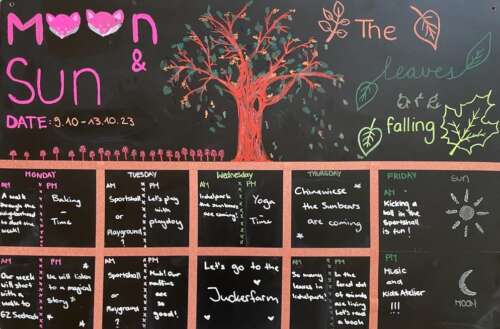 MOON
&
SUN
DATE: 9.10 - 13.10.23
The
leaves
are
falling
MONDAY
AM
PM
A walk
through the
neighborhood
to start the
week!
Baking
- Time
TUESDAY
AM
PM
Sportshall
or
Playground?
Let's play
with
playdoy
Wednesday
AM
PM
Indulpark
the sunbears
are coming!
Yoga
Time
THURSDAY
Chinewiese
the Sunbears
are coming
FRIDAY
AM
Kicking a
ball in the
Sportshall
is fun!
SUN
Our week
will start
with a
walk to
GZ Seebach
We will listen
to a magical
story
Sportshall
or
Playground?
Muh! Our
muffins
are
good!
Let's go to the
Juckerfarm
AM
PM
So many
leaves in
Indulpark!
In the
forest
of
friends
are living
Let's read
a book
PM
Music
and
Kids Atelier
!!!
MOON